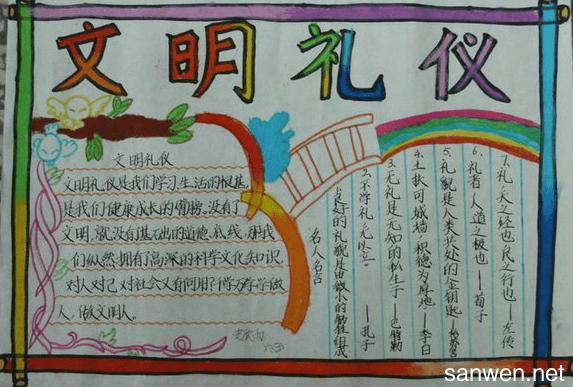 文明礼仪
文明礼仪
文明礼仪是我们学习,生活的根基,
是我们健康成长的臂膀。没有了
文明,就没有基础的道德底线,那我
们纵然拥有高深的科学文化知识,
对人对己对社会又有何用?学万学学做
人,做文明人。
名人名言
良好的礼貌是由微小的牺牲组成
2、不学礼,无以立。——孔子
3、无礼是无知的私生子——巴特勒
4、土扶可城墙,积德为厚地——李白
5、礼貌是人类共处的金钥匙——
6、礼者,人道之极也——荀子
7、礼,天之经也,民之行也——左传
sanwen.net